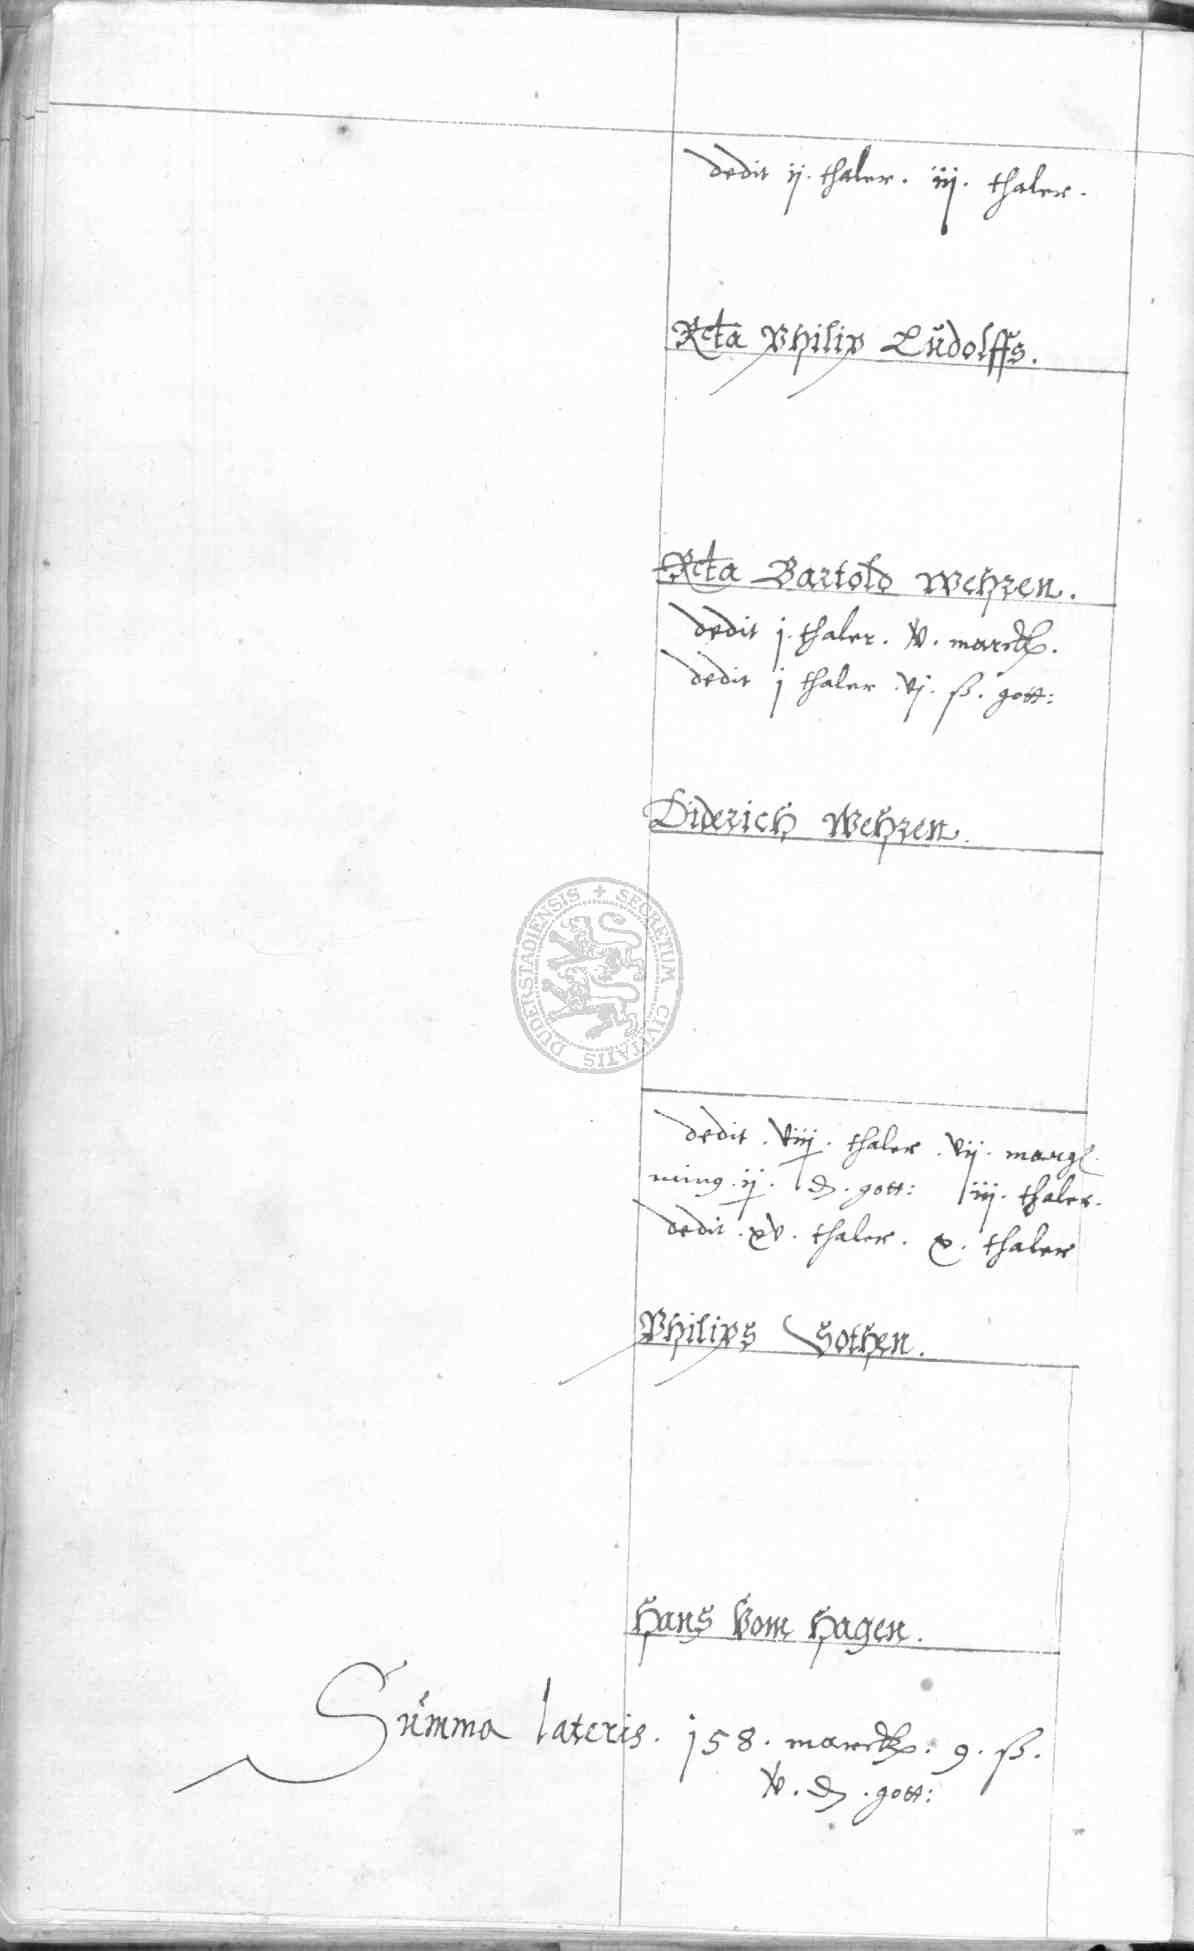 dedit ij. thaler. iij. thaler.
Rcta Philip Ludolffs.
Rcta Bartold Wehren.
dedit j. thaler. v. marck.
dedit j thaler .vj. ß. gott:
Diderich Wehren.
SECRETUM CIVITATIS DUDERSTADIENSIS
dedit .viij. thaler .vij. marg
ming .ij. d. gott: iij. thaler.
dedit .xv. thaler. x. thaler
Philips Hothen.
Hans Vom Hagen.
Summa lateris. 158. marck. 9. ß.
v. d. gott: